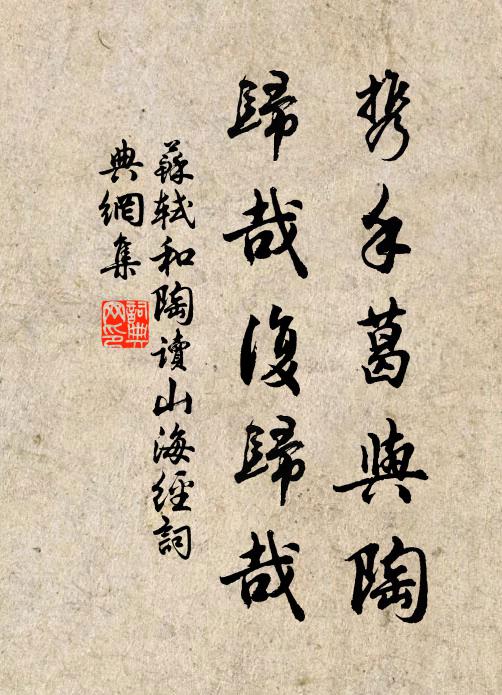 携手葛與陶
歸哉復歸哉
蘇軾和陶讀山海經詞
典網集
詞典
网印